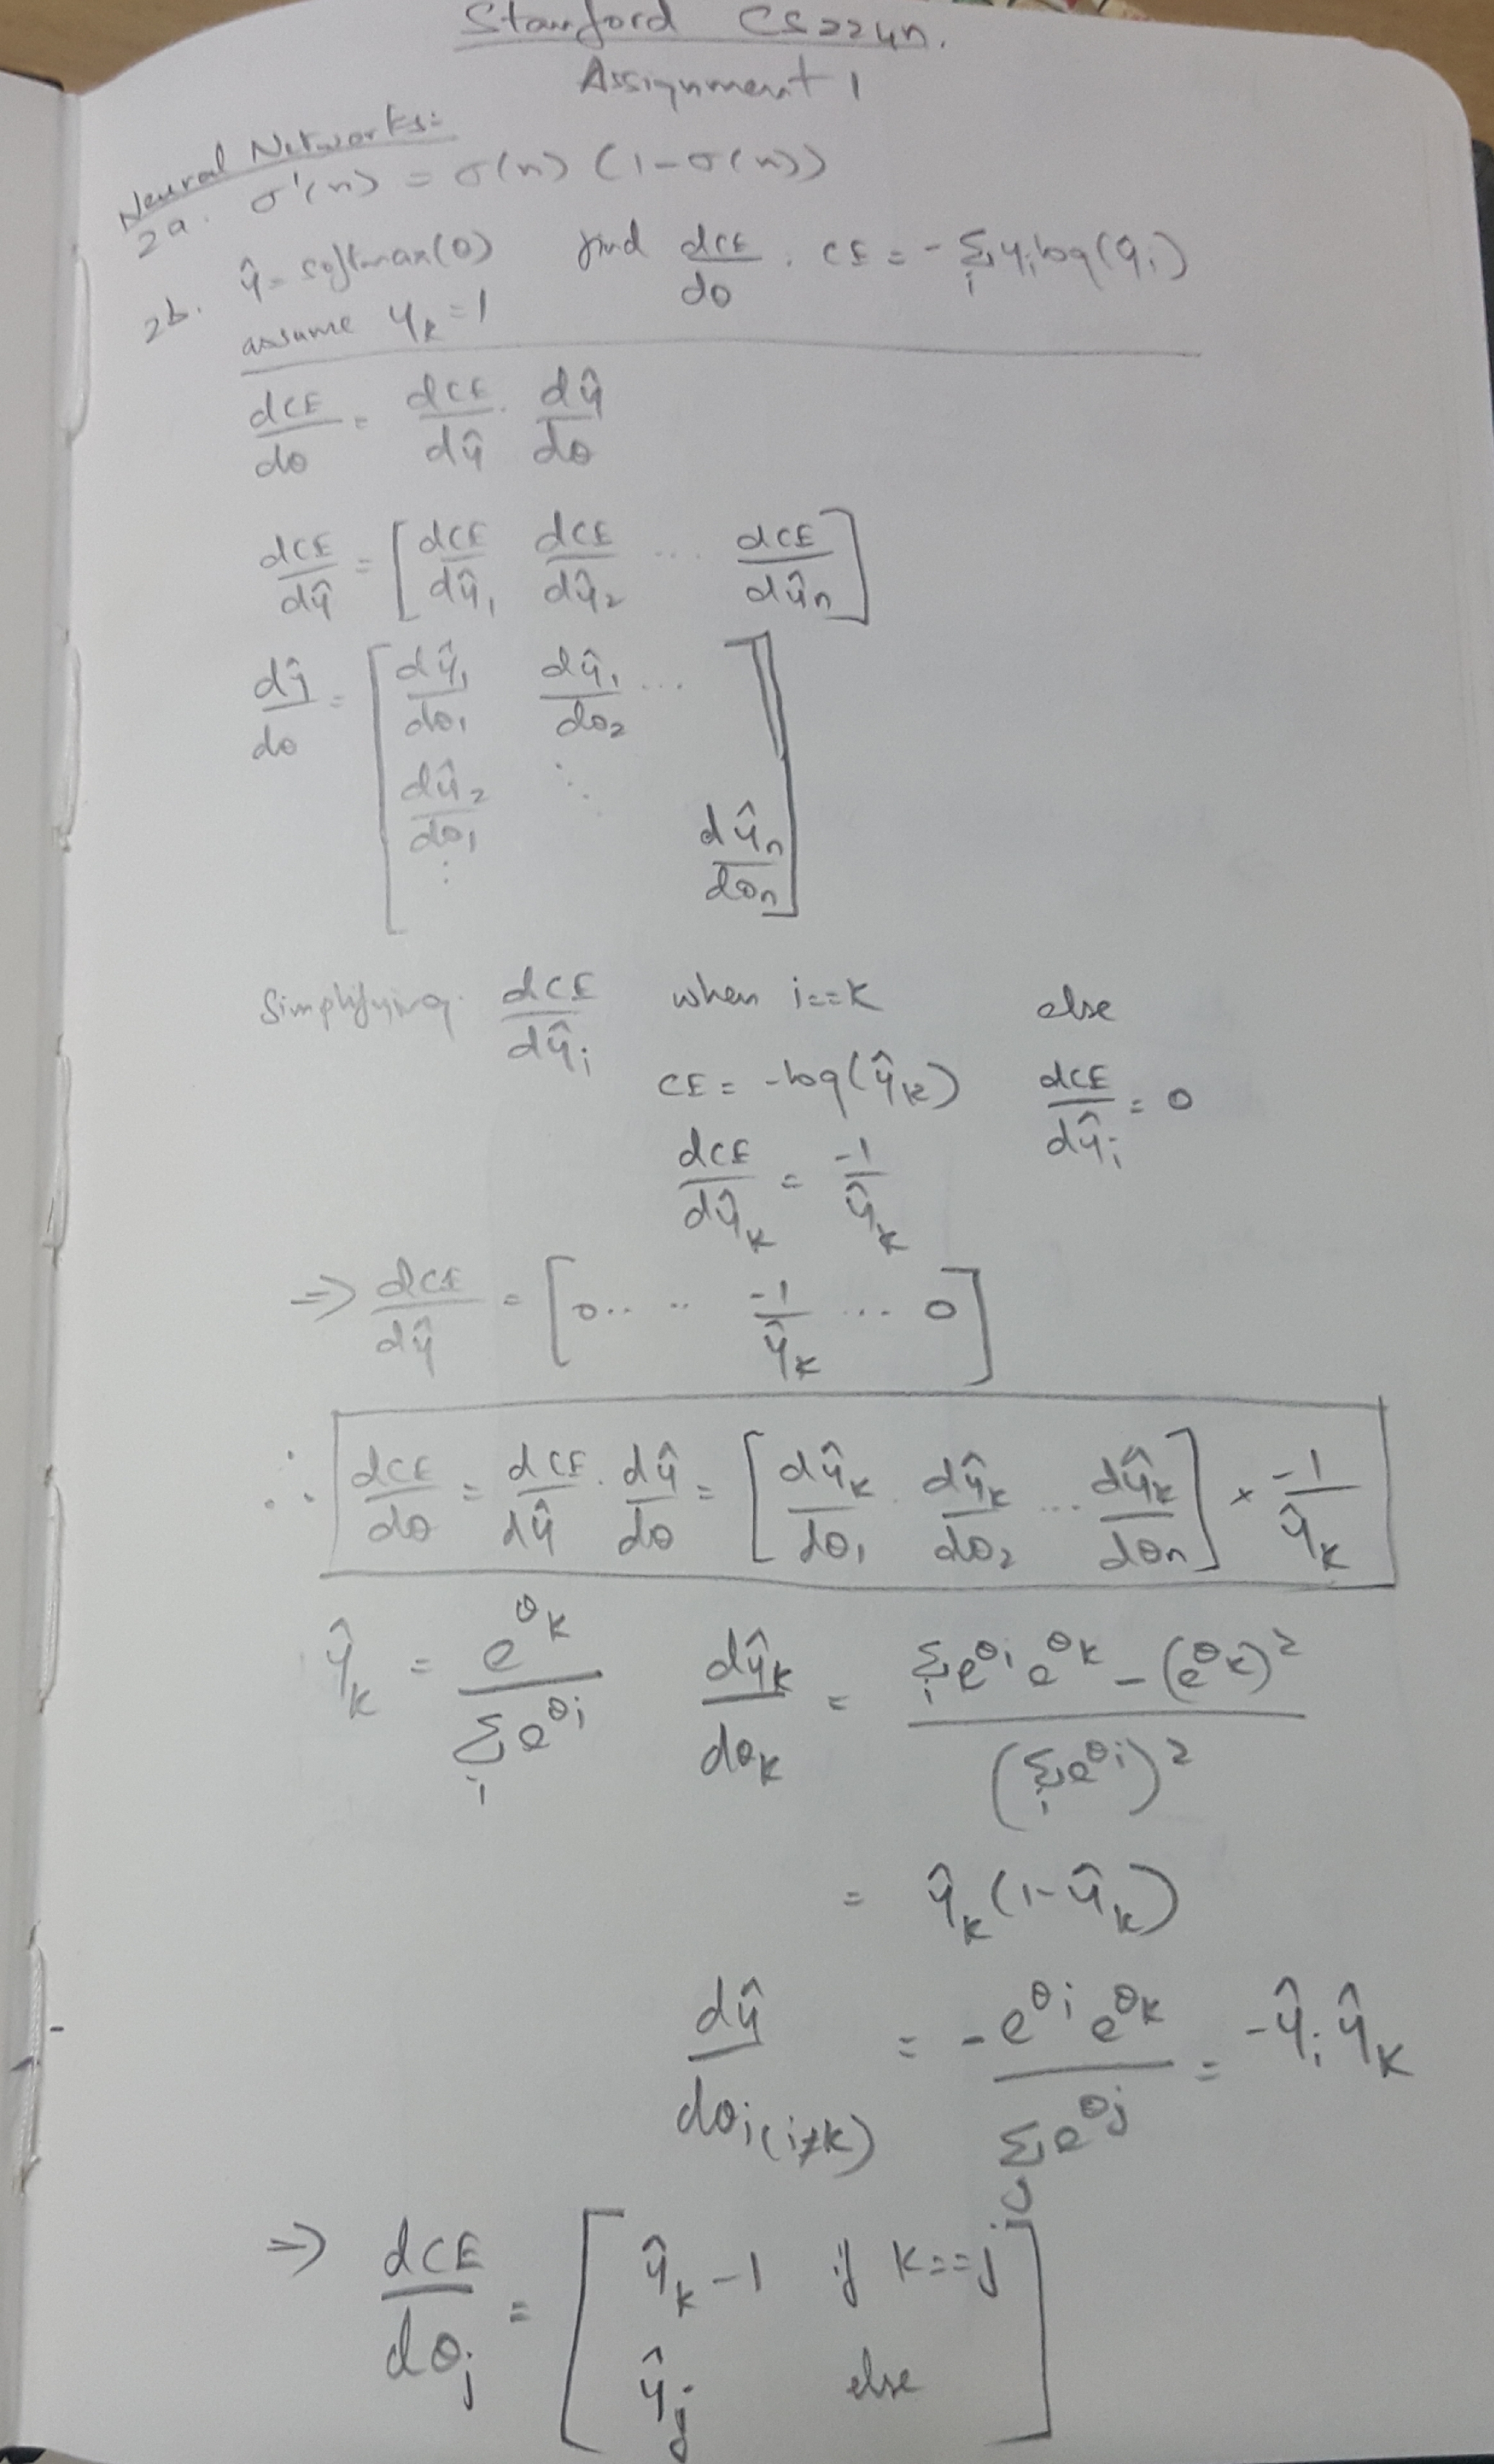 Stanford CS224n.
Assignment 1
Neural Networks:
2a. σ'(n) = σ(n) (1-σ(n))
2b. ŷ = softmax(θ) find dCE/dθ . CE = -Σ_i y_i log(ŷ_i)
assume y_k = 1
dCE/dθ = dCE/dŷ . dŷ/dθ
dCE/dŷ = [dCE/dŷ_1 dCE/dŷ_2 ... dCE/dŷ_n]
dŷ/dθ = [dŷ_1/dθ_1 dŷ_1/dθ_2 ...
dŷ_2/dθ_1 ⋱
⋮ dŷ_n/dθ_n]
Simplifying dCE/dŷ_i when i==k else
CE = -log(ŷ_k) dCE/dŷ_i = 0
dCE/dŷ_k = -1/ŷ_k
⇒ dCE/dŷ = [0.. .. -1/ŷ_k ... 0]
∴ dCE/dθ = dCE/dŷ . dŷ/dθ = [dŷ_k/dθ_1 . dŷ_k/dθ_2 ... dŷ_k/dθ_n] × -1/ŷ_k
ŷ_k = e^θ_k / Σ_i e^θ_i dŷ_k/dθ_k = (Σ_i e^θ_i e^θ_k - (e^θ_k)^2) / (Σ_i e^θ_i)^2
= ŷ_k (1-ŷ_k)
dŷ/dθ_i (i≠k) = -e^θ_i e^θ_k / Σ_j e^θ_j = -ŷ_i ŷ_k
⇒ dCE/dθ_j = [ŷ_k - 1 if k==j
ŷ_j else]